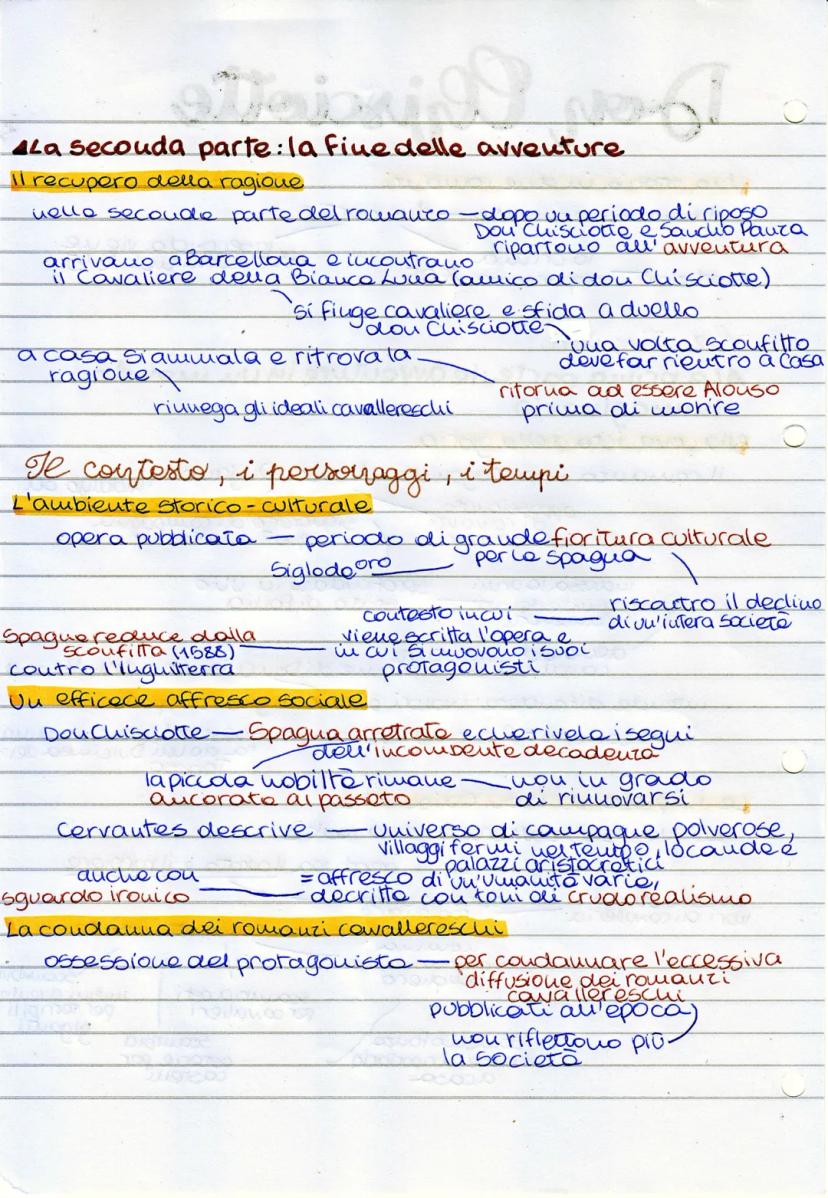 La seconda parte: la fine delle avventure
Il recupero della ragione
nella seconda parte del romanzo — dopo un periodo di riposo
Don Chisciotte e Sancho Panza
ripartono all'avventura
arrivano a Barcellona e incontrano
il Cavaliere della Bianca Luna (amico di don Chisciotte)
si finge cavaliere e sfida a duello
don Chisciotte
una volta sconfitto
deve far rientro a casa
a casa si ammala e ritrova la
ragione
ritorna ad essere Alonso
prima di morire
rinnega gli ideali cavallereschi
Il contesto, i personaggi, i tempi
L'ambiente storico-culturale
opera pubblicata — periodo di grande fioritura culturale
per la Spagna
Siglo de oro
riscontro il declino
di un'intera società
contesto in cui
viene scritta l'opera e
in cui si muovono i suoi
protagonisti
Spagna reduce dalla
sconfitta (1588)
contro l'Inghilterra
Un efficace affresco sociale
Don Chisciotte — Spagna arretrata e che rivela i segni
dell'incombente decadenza
la piccola nobiltà rimane — non in grado
ancorata al passato di rinnovarsi
Cervantes descrive — universo di campagne polverose,
villaggi fermi nel tempo, locande e
palazzi aristocratici
anche con = affresco di un'umanità varia,
sguardo ironico — descritta con toni di crudo realismo
La condanna dei romanzi cavallereschi
ossessione del protagonista — per condannare l'eccessiva
diffusione dei romanzi
cavallereschi
pubblicati all'epoca
non riflettono più
la società